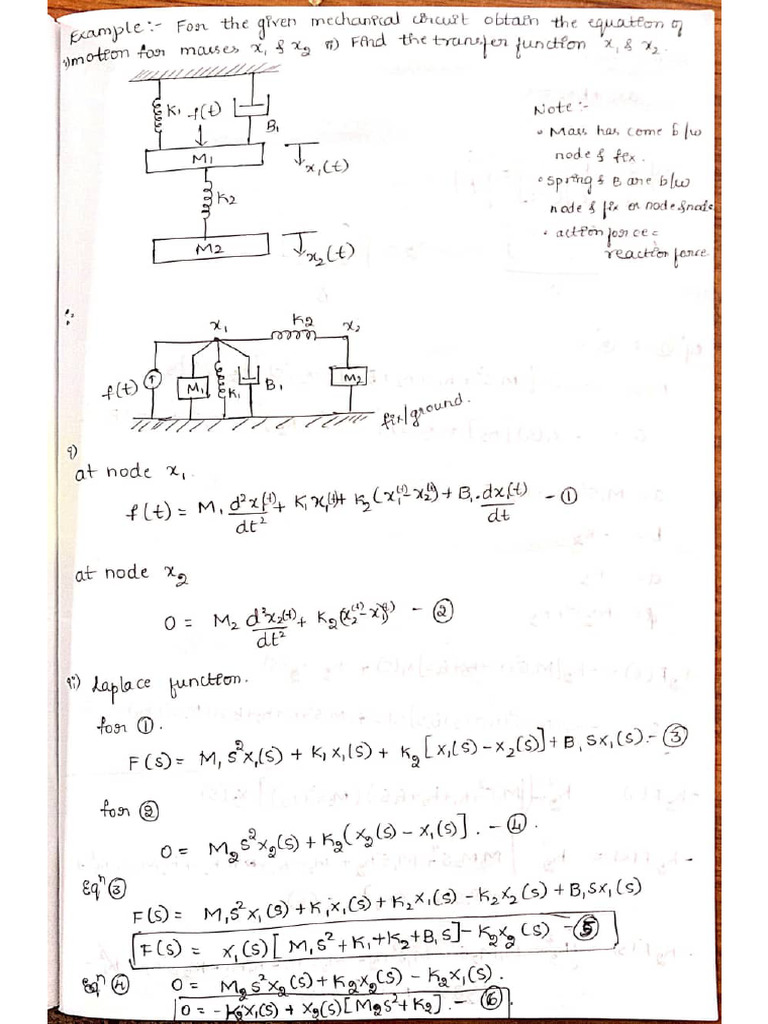 Example:- For the given mechanical circuit obtain the equation of
i) motion for masses x₁ & x₂ ii) Find the transfer function x₁ & x₂.
K₁ f(t) B₁
M₁
x₁(t)
K₂
M₂
x₂(t)
Note:-
• Mass has come b/w
node & fix.
• spring & B are b/w
node & fix or node & node
• action force =
reaction force
∴
x₁ K₂ x₂
f(t) M₁ K₁ B₁ M₂
fix/ground.
i)
at node x₁.
f(t) = M₁ d²x₁(t)/dt² + K₁x₁(t) + K₂(x₁(t) - x₂(t)) + B₁.dx₁(t)/dt - ①
at node x₂
0 = M₂ d²x₂(t)/dt² + K₂(x₂(t) - x₁(t)) - ②
ii) Laplace function.
for ①.
F(s) = M₁s²x₁(s) + K₁x₁(s) + K₂[x₁(s) - x₂(s)] + B₁sx₁(s). - ③
for ②
0 = M₂s²x₂(s) + K₂(x₂(s) - x₁(s)]. - ④.
Eqⁿ ③
F(s) = M₁s²x₁(s) + K₁x₁(s) + K₂x₁(s) - K₂x₂(s) + B₁sx₁(s)
F(s) = x₁(s)[M₁s² + K₁ + K₂ + B₁s] - K₂x₂(s) - ⑤
Eqⁿ ④ 0 = M₂s²x₂(s) + K₂x₂(s) - K₂x₁(s).
0 = -K₂x₁(s) + x₂(s)[M₂s² + K₂]. - ⑥